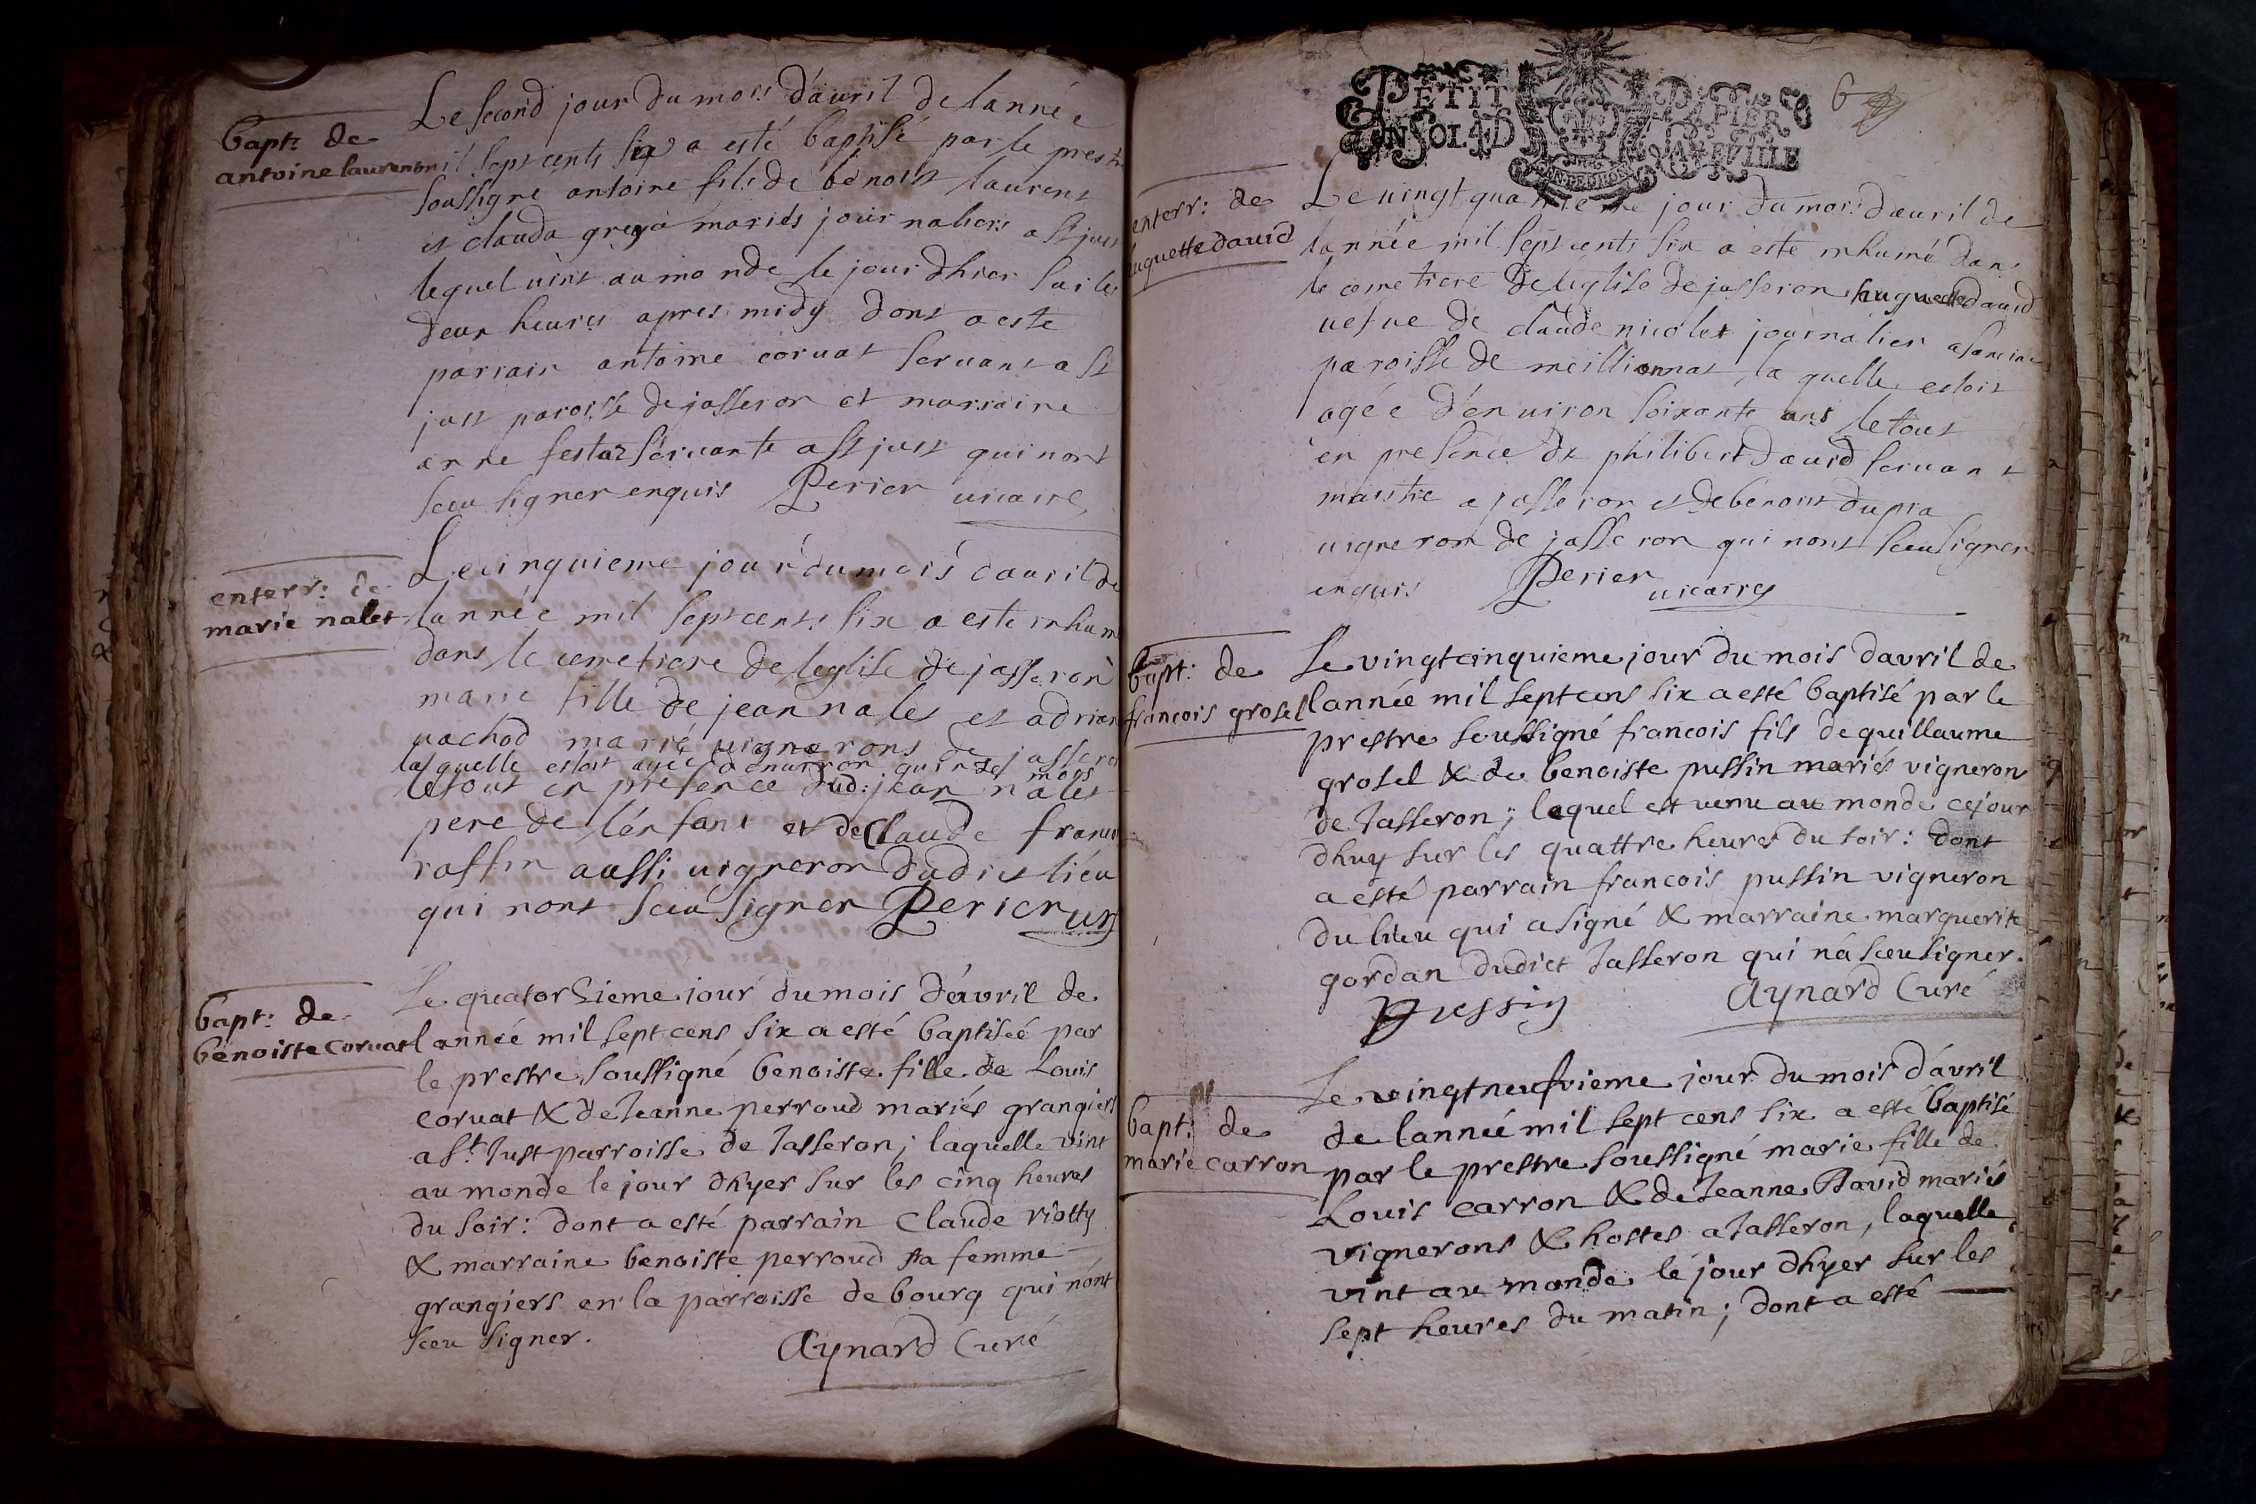 bapt: de
antoine laurent
Le second jour du mois d'auril de lannée
mil sept cents six a esté baptisé par le prest
soussigne antoine fils de bénoist laurent
et clauda mariés journaliers a st just
lequel uint au monde le jour dhier sur les
deux heures apres midy dont a este
parrain antoine coruat seruant a st
just paroisse de jasseron et marraine
anne seruante a st just qui nont
sceu signer enquis Perier uicaire
enterr: de
marie nalet
Le cinquieme jour du mois dauril de
lannée mil sept cents six a este inhumé
dans le cemetiere de leglise de jasseron
marie fille de jean nales et adriane
uachod marié uignerons de jasseron
laquelle estoit agée d'enuiron quinze mois
le tout en presence dud: jean nales
pere de lénfant et de claude franc
raffin aussi uigneron dudict liéu
qui nont sceu signer Perier
bapt: de
benoiste coruat
Le quatorzieme jour du mois d'avril de
lannée mil sept cens six a esté baptiseé par
le prestre soussigné benoiste fille de Louis
coruat & de Jeanne perroud mariés grangiers
a St. Just parroisse de Jasseron; laquelle vint
au monde le jour dhyer sur les cinq heures
du soir: dont a esté parrain claude riotty
& marraine benoiste perroud sa femme
grangiers en la parroisse de bourg qui nónt
sceu signer.
Aynard Curé
PETIT PAPIER
UN SOL 4 D LA FEUILLE
6
enterr: de
huguette dauid
Le uingt quatrieme jour du mois dauril de
lannée mil sept cents six a este inhumé dans
le cemetiere de leglise de jasseron huguette dauid
uefue de claude nicolet journalier
paroisse de meillionnat, la quelle estoit
agée d'enuiron soixante ans le tout
en presence de philibert dauid seruant
a jasseron et de benoist dupra
uigneron de jasseron qui nont sceu signer
enquis Perier uicaire
bapt: de
francois grosel
Le vingtcinquieme jour du mois davril de
lannée mil sept cens six a esté baptisé par le
prestre soussigné francois fils de guillaume
grosel & de benoiste pussin mariés vigneron
de Jasseron; lequel est venu au monde cejour
dhuy sur les quattre heures du soir: dont
a esté parrain francois pussin vigneron
du lieu qui a signé & marraine marguerite
gordan dudict Jasseron qui ná sceu signer.
Pussin Aynard Curé
bapt: de
marie carron
Le vingtneufvieme jour du mois d'avril
de lannée mil sept cens six a esté baptisé
par le prestre soussigné marie fille de
Louis carron & de Jeanne David mariés
vignerons & hostes a Jasseron, laquelle
vint au monde le jour dhyer sur les
sept heures du matin; dont a esté